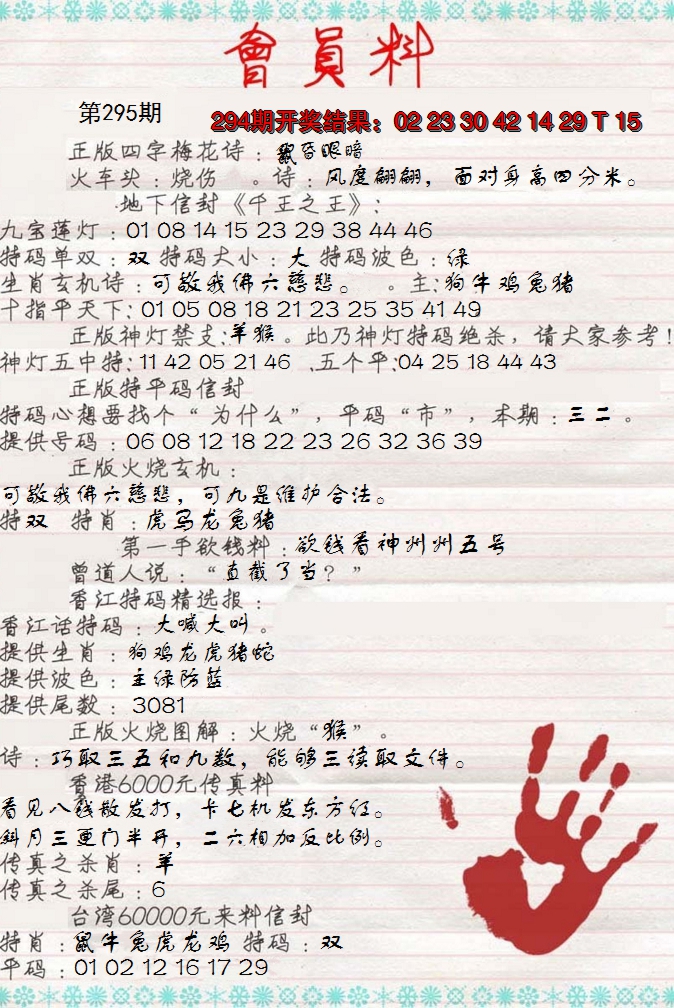 會員料
第295期
294期开奖结果：02 23 30 42 14 29 T 15
正版四字梅花诗：鼠昏眼暗
火车头：烧伤 。诗：风度翩翩，面对身高四分米。
地下信封《千王之王》：
九宝莲灯：01 08 14 15 23 29 38 44 46
特码单双：双 特码大小：大 特码波色：绿
生肖玄机诗：可敬我佛六慈悲。 。主:狗牛鸡兔猪
十指平天下: 01 05 08 18 21 23 25 35 41 49
正版神灯禁支:羊猴 。此乃神灯特码绝杀，请大家参考!
神灯五中特: 11 42 05 21 46 .五个平:04 25 18 44 43
正版特平码信封
特码心想要找个“为什么”，平码“市”，本期：三二 。
提供号码：06 08 12 18 22 23 26 32 36 39
正版火烧玄机：
可敬我佛六慈悲，可九是维护合法。
特双 特肖：虎马龙兔猪
第一手欲钱料：欲钱看神州州五号
曾道人说：“直截了当？”
香江特码精选报：
香江话特码：大喊大叫 。
提供生肖：狗鸡龙虎猪蛇
提供波色：主绿防蓝
提供尾数：3081
正版火烧图解：火烧“猴”。
诗：巧取三五和九数，能够三读取文件。
香港6000元传真料
看见八钱散发打，卡七机发东方红。
斜月三更门半开，二六相加反比例。
传真之杀肖：羊
传真之杀尾：6
台湾60000元来料信封
特肖：鼠牛兔虎龙鸡 特码：双
平码：01 02 12 16 17 29